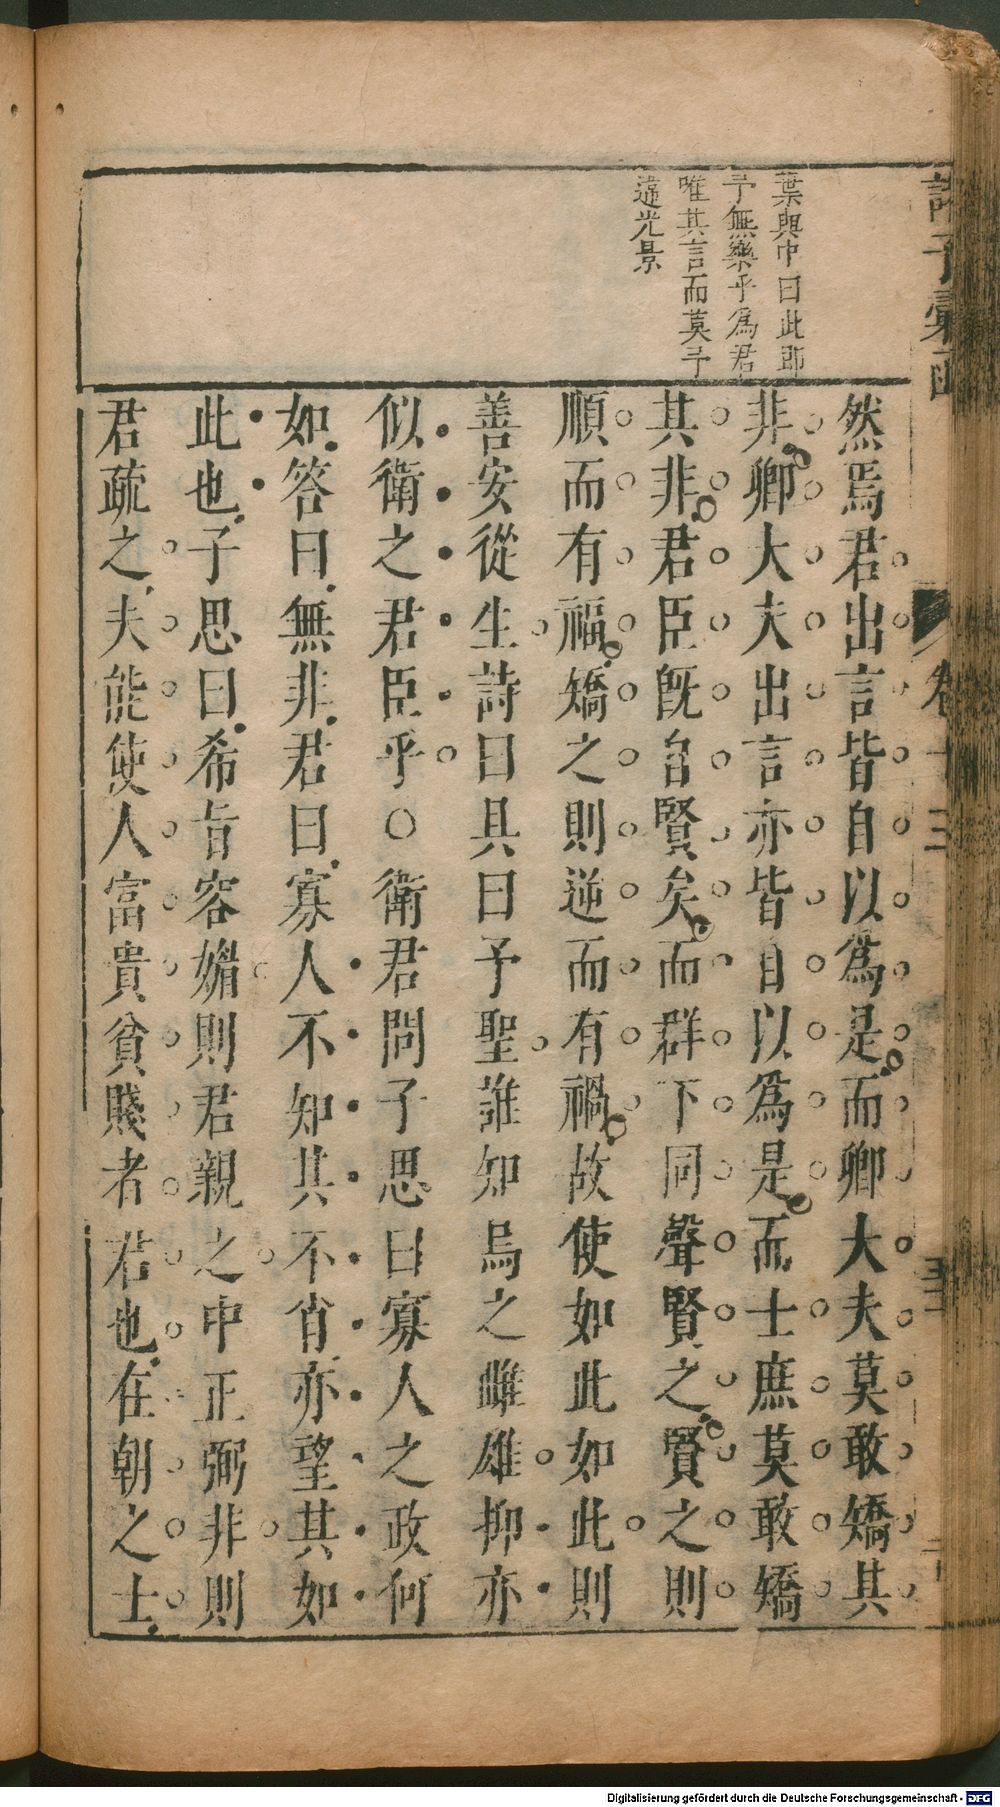 諸子彙函
卷十三
葉與中曰此即
予無樂乎爲君
唯其言而莫予
違光景
然焉君出言皆自以爲是而卿大夫莫敢矯其
非卿大夫出言亦皆自以爲是而士庶莫敢矯
其非君臣旣自賢矣而群下同聲賢之賢之則
順而有福矯之則逆而有禍故使如此如此則
善安從生詩曰具曰予聖誰知烏之雌雄抑亦
似衛之君臣乎○衛君問子思曰寡人之政何
如答曰無非君曰寡人不知其不肖亦望其如
此也子思曰希旨容媚則君親之中正弼非則
君疏之夫能使人富貴貧賤者君也在朝之士
Digitalisierung gefördert durch die Deutsche Forschungsgemeinschaft - DFG